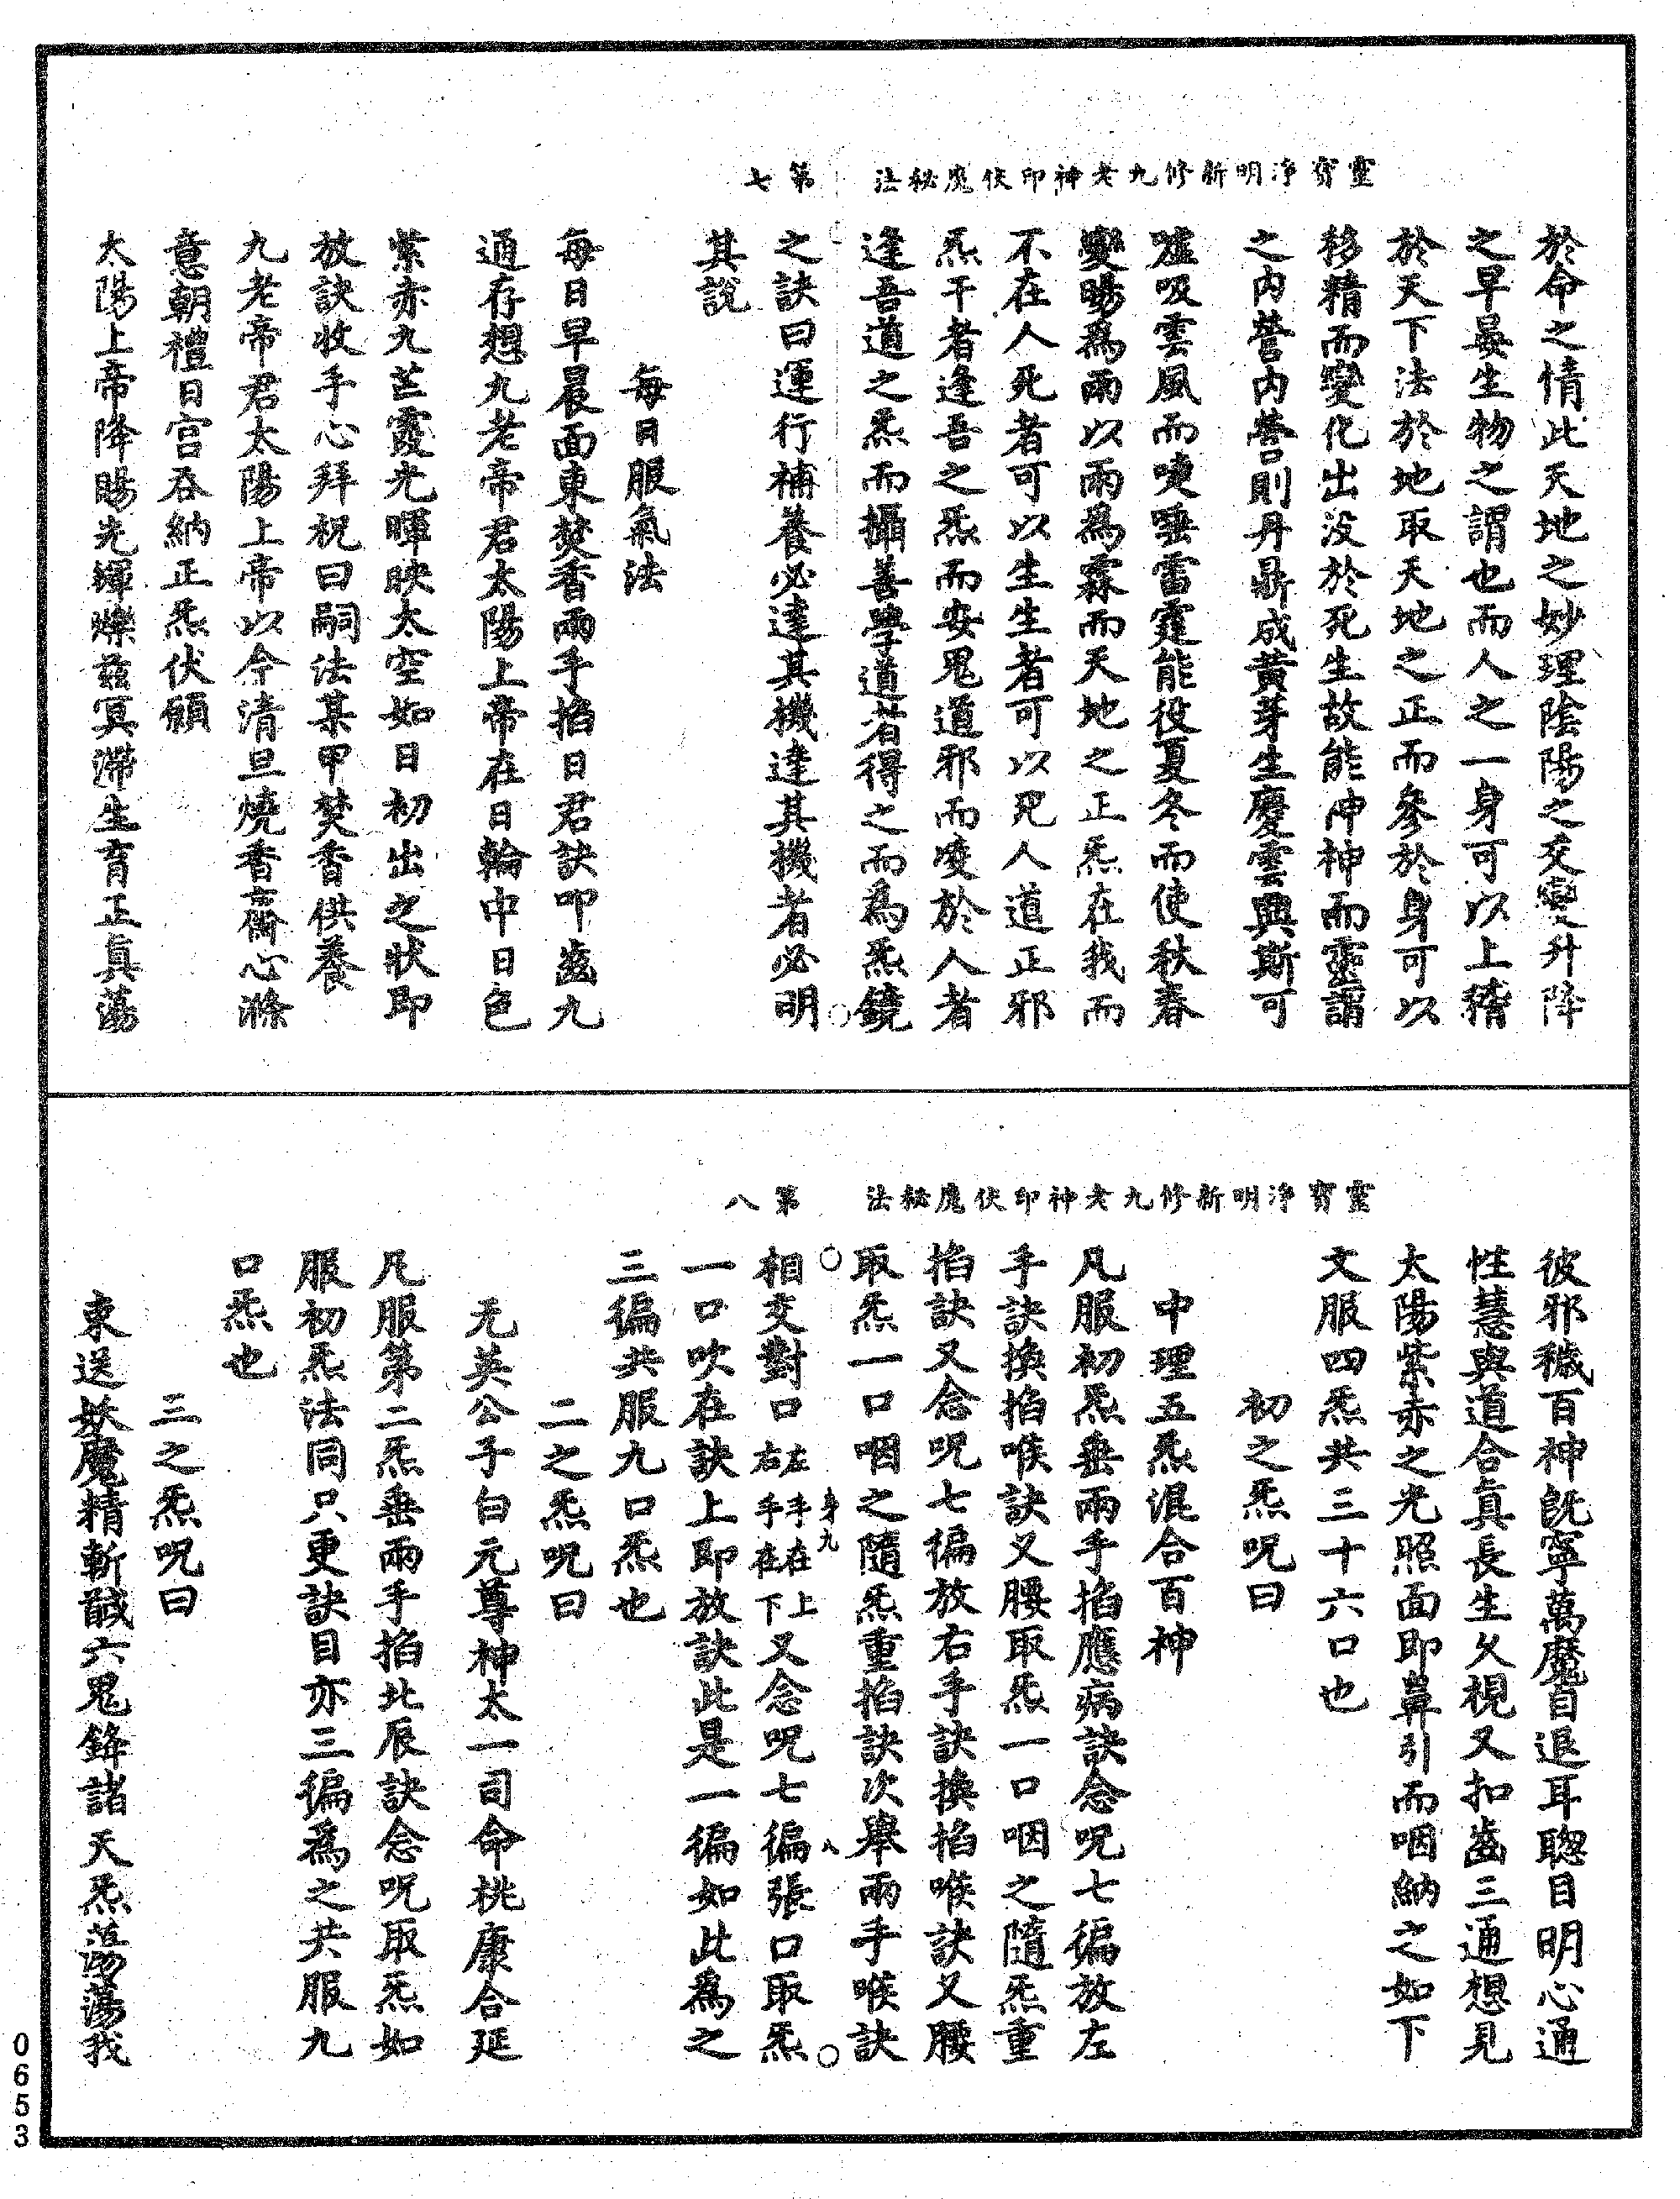 靈寶淨明新修九老神印伏魔秘法　第七
於命之情此天地之妙理陰陽之交變升降
之早晏生物之謂也而人之一身可以上稽
於天下法於地取天地之正而參於身可以
移精而變化出没於死生故能伸神而靈謂
之内營内營則丹鼎成黃芽生慶雲興斯可
嘘吸雲風而唾雷霆能役夏冬而使秋春
變暘為雨以雨為霖而天地之正炁在我而
不在人死者可以生生者可以死人道正邪
炁干者逢吾之炁而安鬼道邪而於人者
逢吾道之炁而攝善學道若得之而為炁鏡
之訣曰運行補養必達其機達其機者必明
其說
每日服氣法
每日早晨面東焚香兩手掐日君訣叩齒九
通存想九老帝君太陽上帝在日輪中日色
紫赤九芒霞光暉映太空如日初出之狀即
放訣收手心拜祝曰嗣法某甲焚香供養
九老帝君太陽上帝以今清旦燒香齋心滌
意朝禮日宫吞納正炁伏願
太陽上帝降暘光輝爍茲冥滯生育正真蕩
靈寶淨明新修九老神印伏魔秘法　第八
彼邪穢百神旣寧萬魔自退耳聦目明心通
性慧與道合真長生乆視又扣齒三通想見
太陽紫赤之光照面即鼻引而咽納之如下
文服四炁共三十六口也
初之炁呪曰
中理五炁混合百神
凡服初炁垂兩手掐應病訣念呪七徧放左
手訣換掐喉訣又腰取炁一口咽之隨炁重
掐訣又念呪七徧放右手訣換掐喉訣又腰
取炁一口咽之隨炁重掐訣次舉兩手喉訣
身九　八
相交對口左手在上右手在下又念呪七徧張口取炁
一口吹在訣上即放訣此是一徧如此為之
三徧共服九口炁也
二之炁呪曰
无英公子白元尊神太一司命桃康合延
凡服第二炁垂兩手掐北辰訣念呪取炁如
服初炁法同只更訣目亦三徧為之共服九
口炁也
三之炁呪曰
東送妖魔精斬馘六鬼鋒諸天炁蕩蕩我
0653